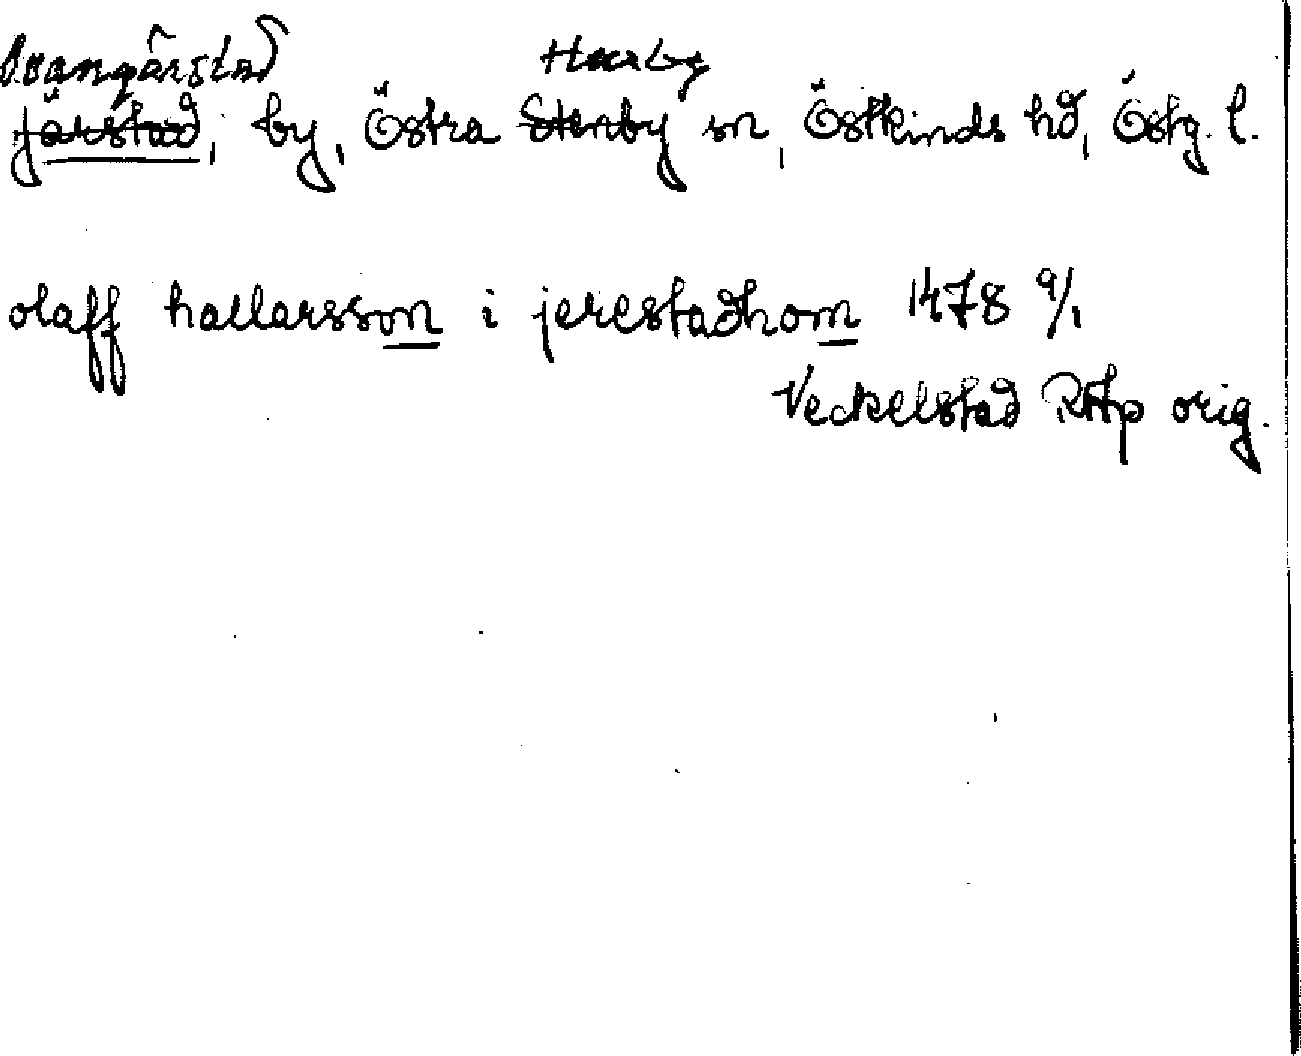 Svangärstad Harby
Järstad, by, Östra Stenby sn, Östkinds hd, Östg. l.
olaff hallarsson i jerestadhom 1478 9/1
Veckelstad RAp orig.